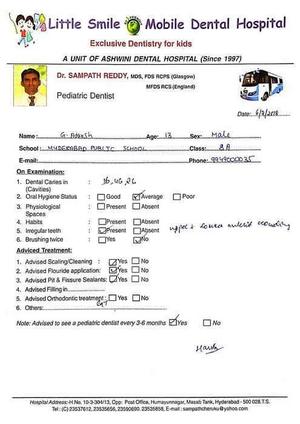 Little Smile Mobile Dental Hospital
Exclusive Dentistry for kids
A UNIT OF ASHWINI DENTAL HOSPITAL (Since 1997)
Dr. SAMPATH REDDY, MDS, FDS RCPS (Glasgow)
MFDS RCS (England)
Pediatric Dentist
Date: 6/2/2018
Name: G. Adarsh Age: 13 Sex: Male
School: HYDERABAD PUBLIC SCHOOL Class: 8A
E-mail: Phone: 9949000035
On Examination:
1. Dental Caries in (Cavities) 36, 46, 26
2. Oral Hygiene Status Good Average Poor
3. Physiological Spaces Present Absent
4. Habits Present Absent
5. Irregular teeth Present Absent upper & lower anterior crowding
6. Brushing twice Yes No
Adviced Treatment:
1. Advised Scaling/Cleaning : Yes No
2. Advised Flouride application: Yes No
3. Advised Pit & Fissure Sealants: Yes No
4. Advised Filling in
5. Advised Orthodontic treatment : Yes No
6. Others:
Note: Advised to see a pediatric dentist every 3-6 months Yes No
Hospital Address:-H.No. 10-3-304/13, Opp: Post Office, Humayunnagar, Masab Tank, Hyderabad - 500 028 T.S.
Tel: (C) 23537612, 23535656, 23590690, 23535858, E-mail : sampathcheruku@yahoo.com